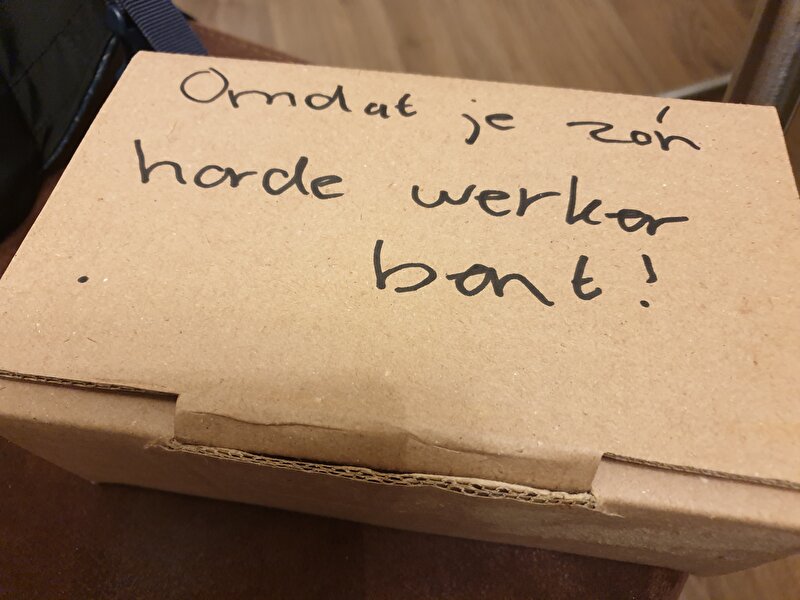 Omdat je zo'n
harde werker
bent!